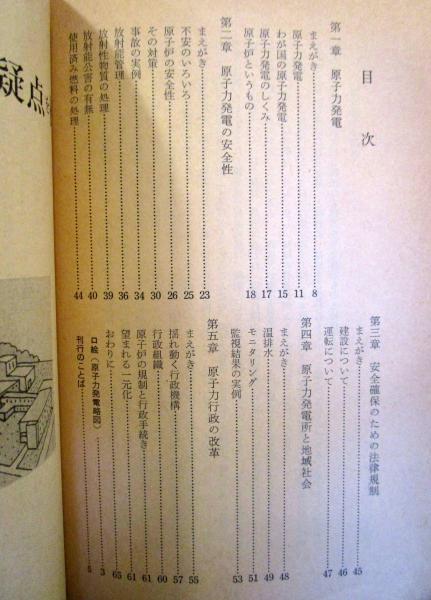 目次
第一章 原子力発電
まえがき 8
原子力発電 11
わが国の原子力発電 15
原子力発電のしくみ 17
原子炉というもの 18
第二章 原子力発電の安全性
まえがき 23
不安のいろいろ 25
原子炉の安全性 26
その対策 30
事故の実例 34
放射能管理 36
放射性物質の処理 39
放射能公害の有無 40
使用済み燃料の処理 44
第三章 安全確保のための法律規制
まえがき 45
建設について 46
運転について 47
第四章 原子力発電所と地域社会
まえがき 48
温排水 49
モニタリング 51
監視結果の実例 53
第五章 原子力行政の改革
まえがき 55
揺れ動く行政機構 57
行政組織 60
原子炉の規制と行政手続き 61
望まれる一元化 61
おわりに 65
口絵(原子力発電略図) 3
刊行のことば 5
疑点を